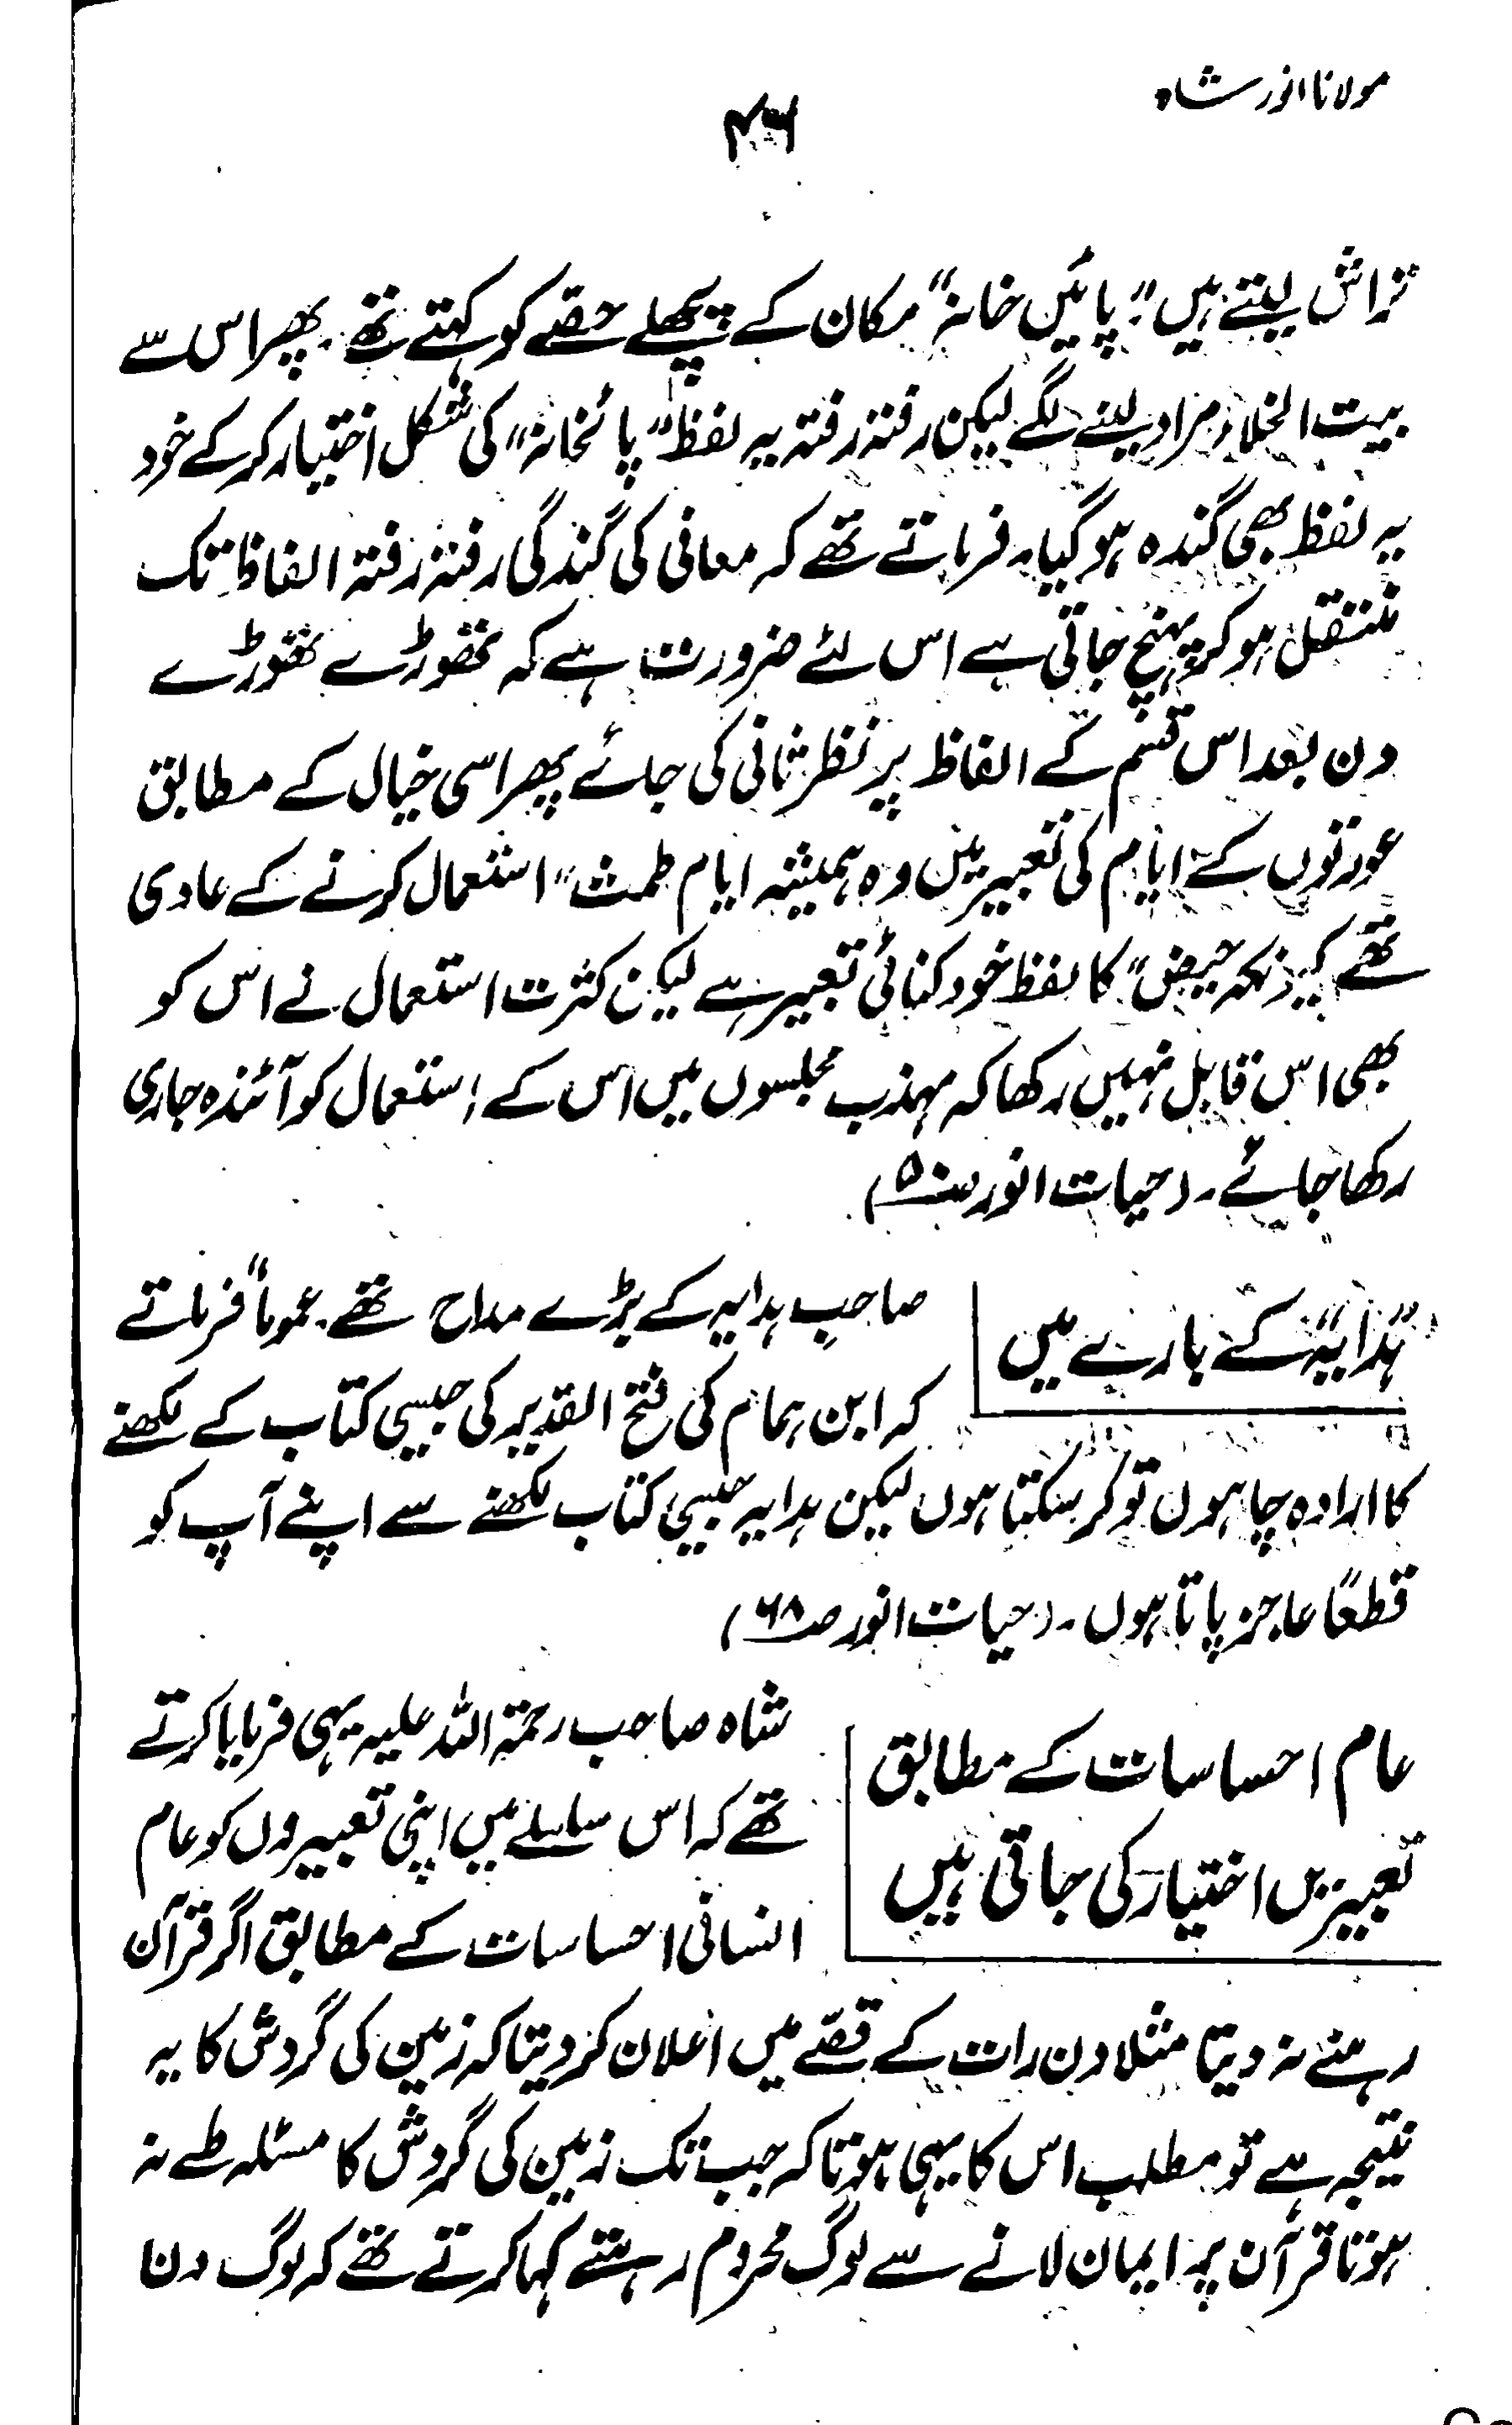 مولانا انور شاہ
۴۶
تراش لیتے ہیں "پائیں خانہ" مکان کے پچھلے حصّے کو کہتے تھے۔ پھر اس سے
بیت الخلاء مراد لینے لگے لیکن رفتہ رفتہ یہ لفظ "پائخانہ" کی شکل اختیار کر کے خود
یہ لفظ بھی گندہ ہو گیا۔ فرماتے تھے کہ معانی کی گندگی رفتہ رفتہ الفاظ تک
منتقل ہو کر پہنچ جاتی ہے اس لئے ضرورت ہے کہ تھوڑے تھوڑے
دن بعد اس قسم کے الفاظ پر نظر ثانی کی جائے پھر اسی خیال کے مطابق
عورتوں کے ایام کی تعبیر میں وہ ہمیشہ ایام طمث" استعمال کرنے کے عادی
تھے کیونکہ حیض" کا لفظ خود کنائی تعبیر ہے لیکن کثرت استعمال نے اس کو
بھی اس قابل نہیں رکھا کہ مہذب مجلسوں میں اس کے استعمال کو آئندہ جاری
رکھا جائے۔ (حیات انور ص۵۰)
"ہدایہ" کے بارے میں
صاحبِ ہدایہ کے بڑے مداح تھے۔ عموماً فرماتے
کہ ابن ہمام کی فتح القدیر کی جیسی کتاب کے لکھنے
کا ارادہ چاہوں تو کر سکتا ہوں لیکن ہدایہ جیسی کتاب لکھنے سے اپنے آپ کو
قطعاً عاجز پاتا ہوں۔ (حیات انور ص۶۸)
عام احساسات کے مطابق
تعبیریں اختیار کی جاتی ہیں
شاہ صاحب رحمۃ اللہ علیہ یہی فرمایا کرتے
تھے کہ اس سلسلے میں اپنی تعبیروں کو عام
انسانی احساسات کے مطابق اگر قرآن
رہنے نہ دیتا مثلا دن رات کے قصّے میں اعلان کر دیتا کہ زمین کی گردش کا یہ
نتیجہ ہے تو مطلب اس کا یہی ہوتا کہ جب تک زمین کی گردش کا مسئلہ طے نہ
ہوتا قرآن پر ایمان لانے سے لوگ محروم رہتے کہا کرتے تھے کہ لوگ دن